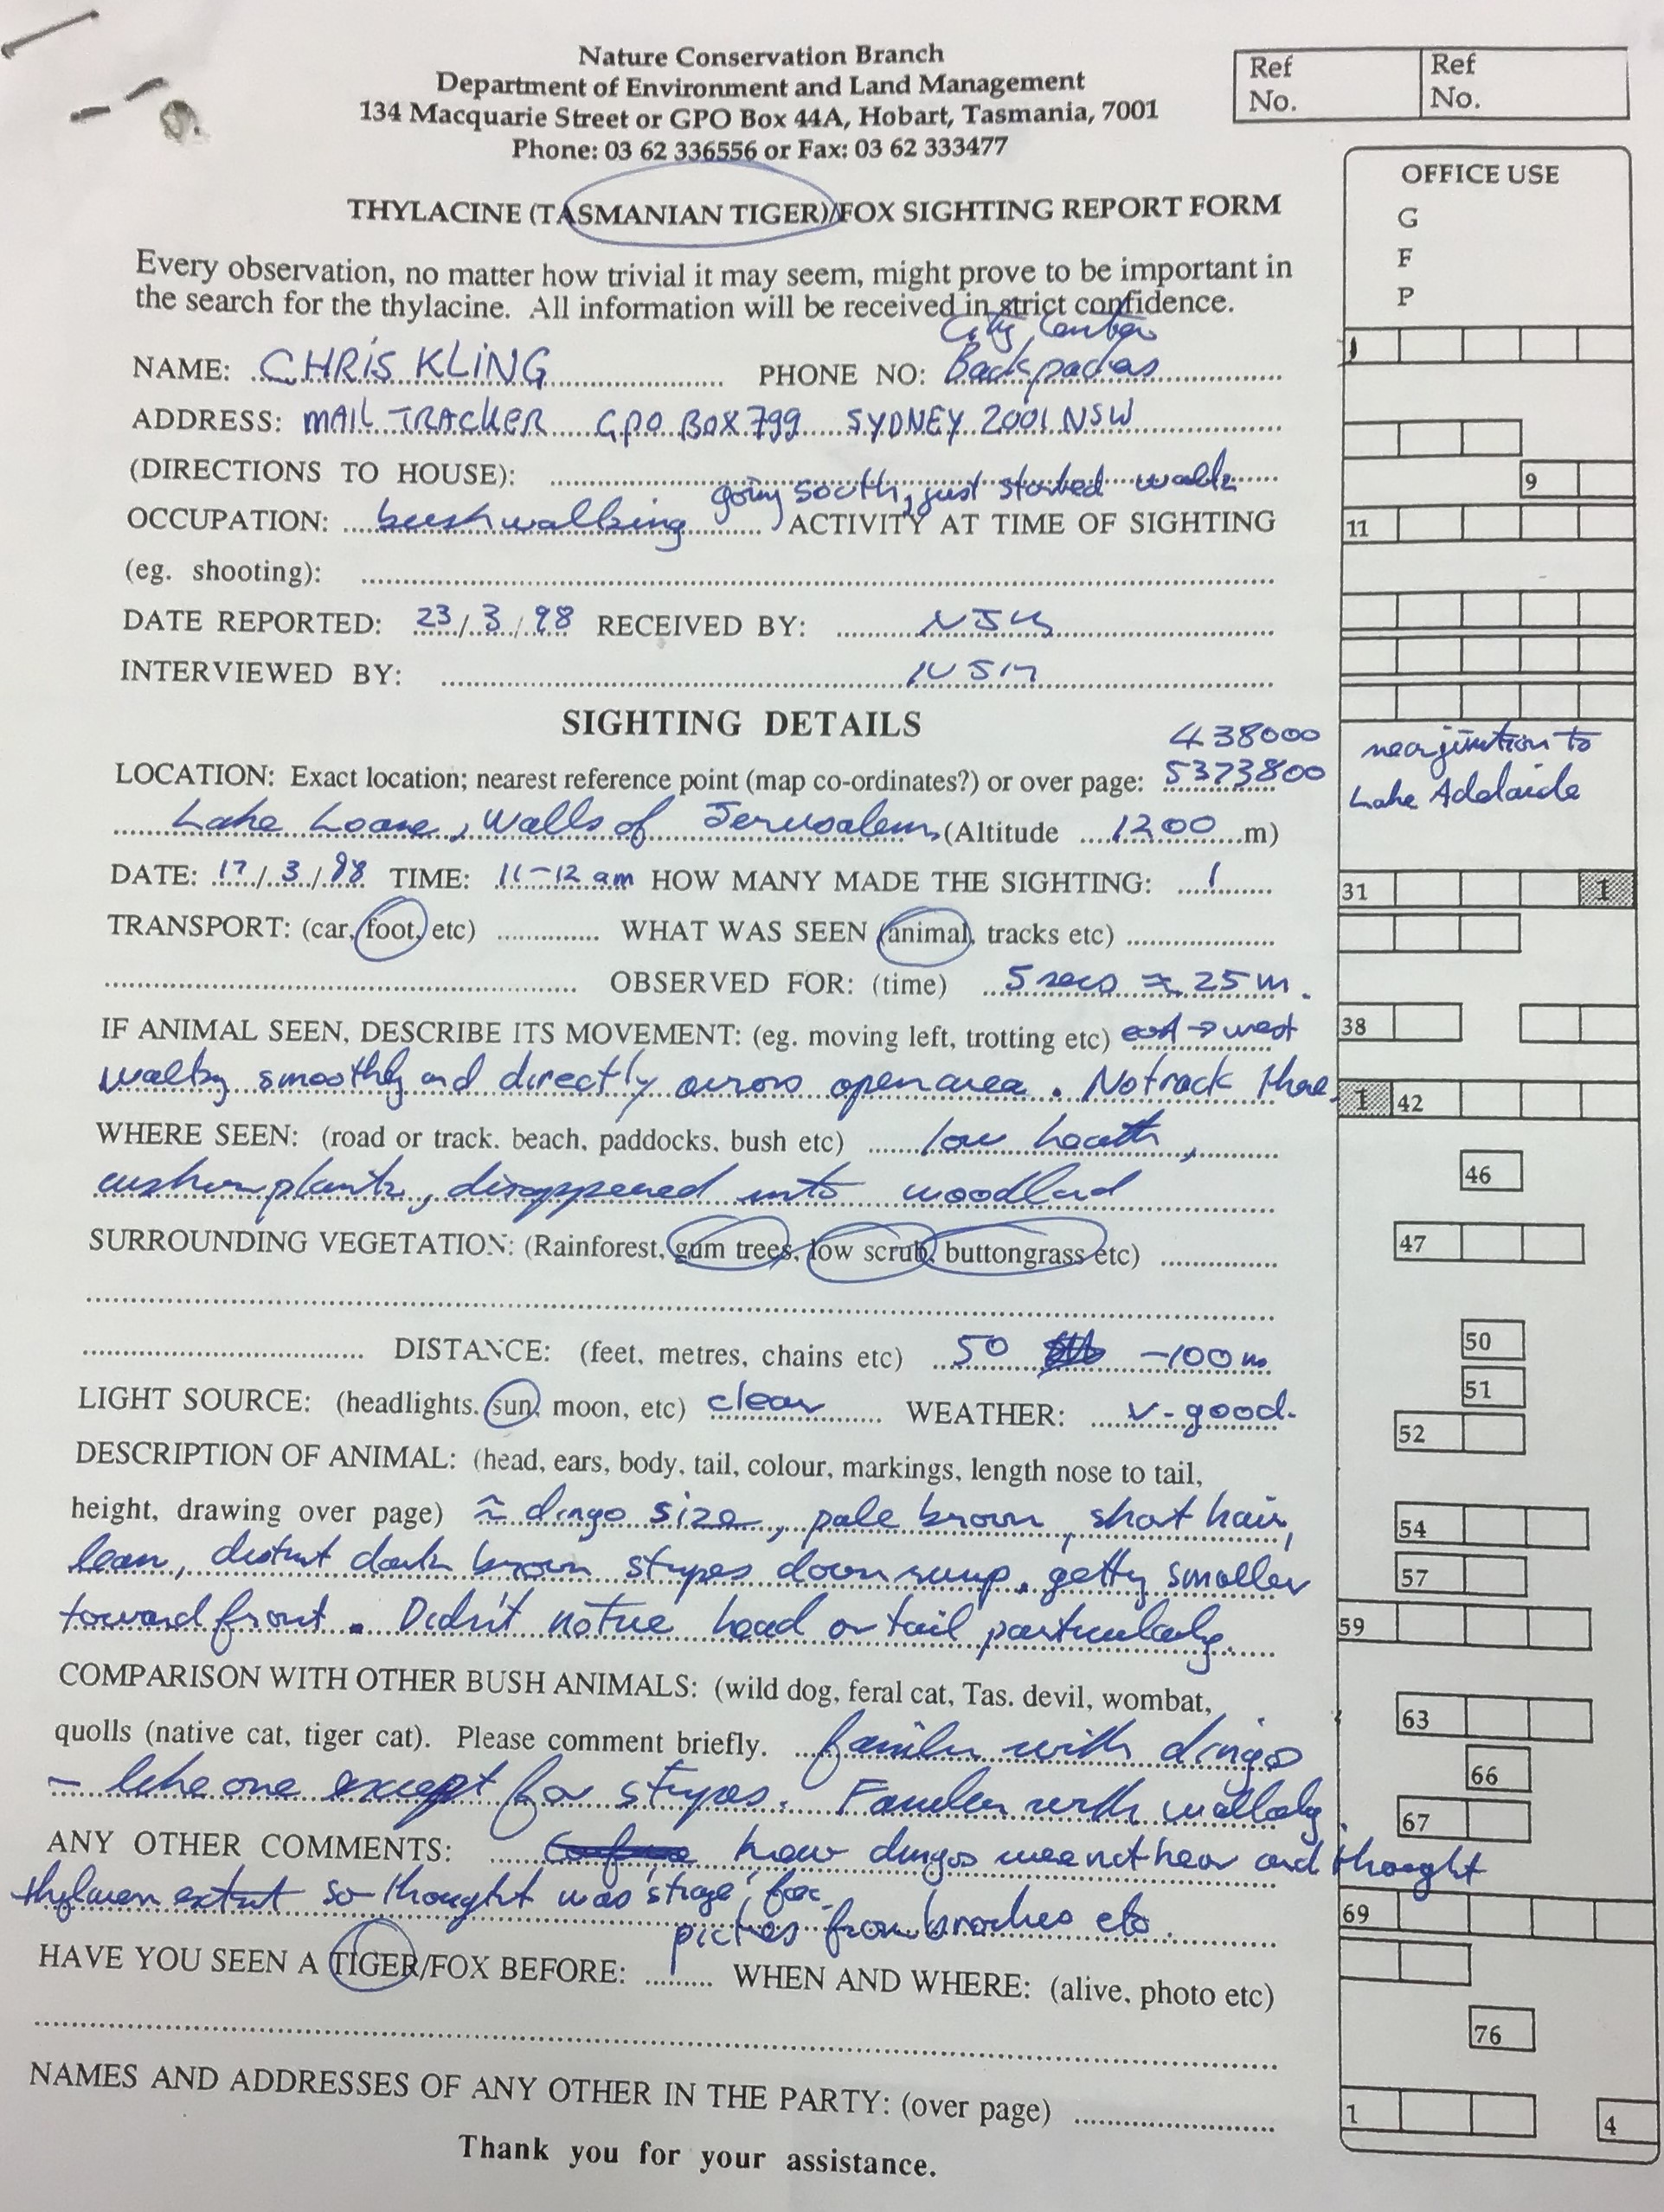 Nature Conservation Branch
Department of Environment and Land Management
134 Macquarie Street or GPO Box 44A, Hobart, Tasmania, 7001
Phone: 03 62 336556 or Fax: 03 62 333477
Ref No.
Ref No.
OFFICE USE
G
F
P
THYLACINE (TASMANIAN TIGER)/FOX SIGHTING REPORT FORM
Every observation, no matter how trivial it may seem, might prove to be important in
the search for the thylacine. All information will be received in strict confidence.
City Center
NAME: CHRIS KLING PHONE NO: Backpackers
ADDRESS: MAIL TRACKER GPO BOX 799 SYDNEY 2001 NSW
(DIRECTIONS TO HOUSE):
9
going south, just started walk
OCCUPATION: bushwalking ACTIVITY AT TIME OF SIGHTING
11
(eg. shooting):
DATE REPORTED: 23/3/98 RECEIVED BY:
INTERVIEWED BY:
SIGHTING DETAILS
438000
LOCATION: Exact location; nearest reference point (map co-ordinates?) or over page: 5373800
near junction to
Lake Adelaide
Lake Loane, Walls of Jerusalem (Altitude 1200 m)
DATE: 17/3/98 TIME: 11-12 am HOW MANY MADE THE SIGHTING: 1
31 1
TRANSPORT: (car, foot, etc) WHAT WAS SEEN (animal, tracks etc)
OBSERVED FOR: (time) 5 secs ≈ 25m.
38
IF ANIMAL SEEN, DESCRIBE ITS MOVEMENT: (eg. moving left, trotting etc) east → west
walking smoothly and directly across open area. No track there.
1 42
WHERE SEEN: (road or track. beach, paddocks, bush etc) low heath,
46
cushion plants, disappeared into woodland
SURROUNDING VEGETATION: (Rainforest, gum trees, low scrub, buttongrass etc)
47
DISTANCE: (feet, metres, chains etc) 50 -100m
50
LIGHT SOURCE: (headlights, sun, moon, etc) clear WEATHER: v-good.
51
52
DESCRIPTION OF ANIMAL: (head, ears, body, tail, colour, markings, length nose to tail,
height, drawing over page) ≈ dingo size, pale brown, short hair,
54
lean, distinct dark brown stripes down rump. getting smaller
57
toward front. Didn't notice head or tail particularly.
59
COMPARISON WITH OTHER BUSH ANIMALS: (wild dog, feral cat, Tas. devil, wombat,
63
quolls (native cat, tiger cat). Please comment briefly. familiar with dingos
66
- like one except for stripes. Familiar with wallaby.
67
ANY OTHER COMMENTS: knew dingos were not here and thought
thylacine extinct so thought was 'strange' fox.
69
pictures from brochures etc.
HAVE YOU SEEN A TIGER/FOX BEFORE: WHEN AND WHERE: (alive, photo etc)
76
NAMES AND ADDRESSES OF ANY OTHER IN THE PARTY: (over page)
1 4
Thank you for your assistance.